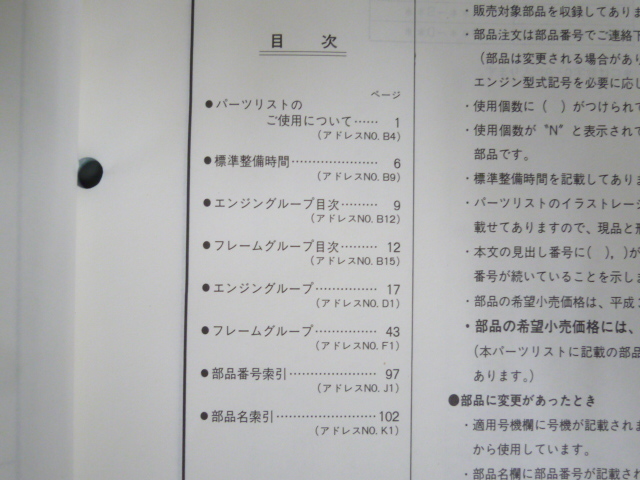 目 次
ページ
●パーツリストの
ご使用について…… 1
(アドレスNO. B4)
●標準整備時間………………… 6
(アドレスNO. B9)
●エンジングループ目次……… 9
(アドレスNO. B12)
●フレームグループ目次……… 12
(アドレスNO. B15)
●エンジングループ…………… 17
(アドレスNO. D1)
●フレームグループ…………… 43
(アドレスNO. F1)
●部品番号索引………………… 97
(アドレスNO. J1)
●部品名索引……………………102
(アドレスNO. K1)
・販売対象部品を収録してありま
・部品注文は部品番号でご連絡下
(部品は変更される場合があり
エンジン型式記号を必要に応じ
・使用個数に( )がつけられて
・使用個数が〝N〞と表示されて
部品です。
・標準整備時間を記載してありま
・パーツリストのイラストレーシ
載せてありますので、現品と形
・本文の見出し番号に( ), )が
番号が続いていることを示しま
・部品の希望小売価格は、平成
・部品の希望小売価格には、
(本パーツリストに記載の部品
あります。)
●部品に変更があったとき
・適用号機欄に号機が記載されま
から使用しています。
・部品名欄に部品番号が記載され